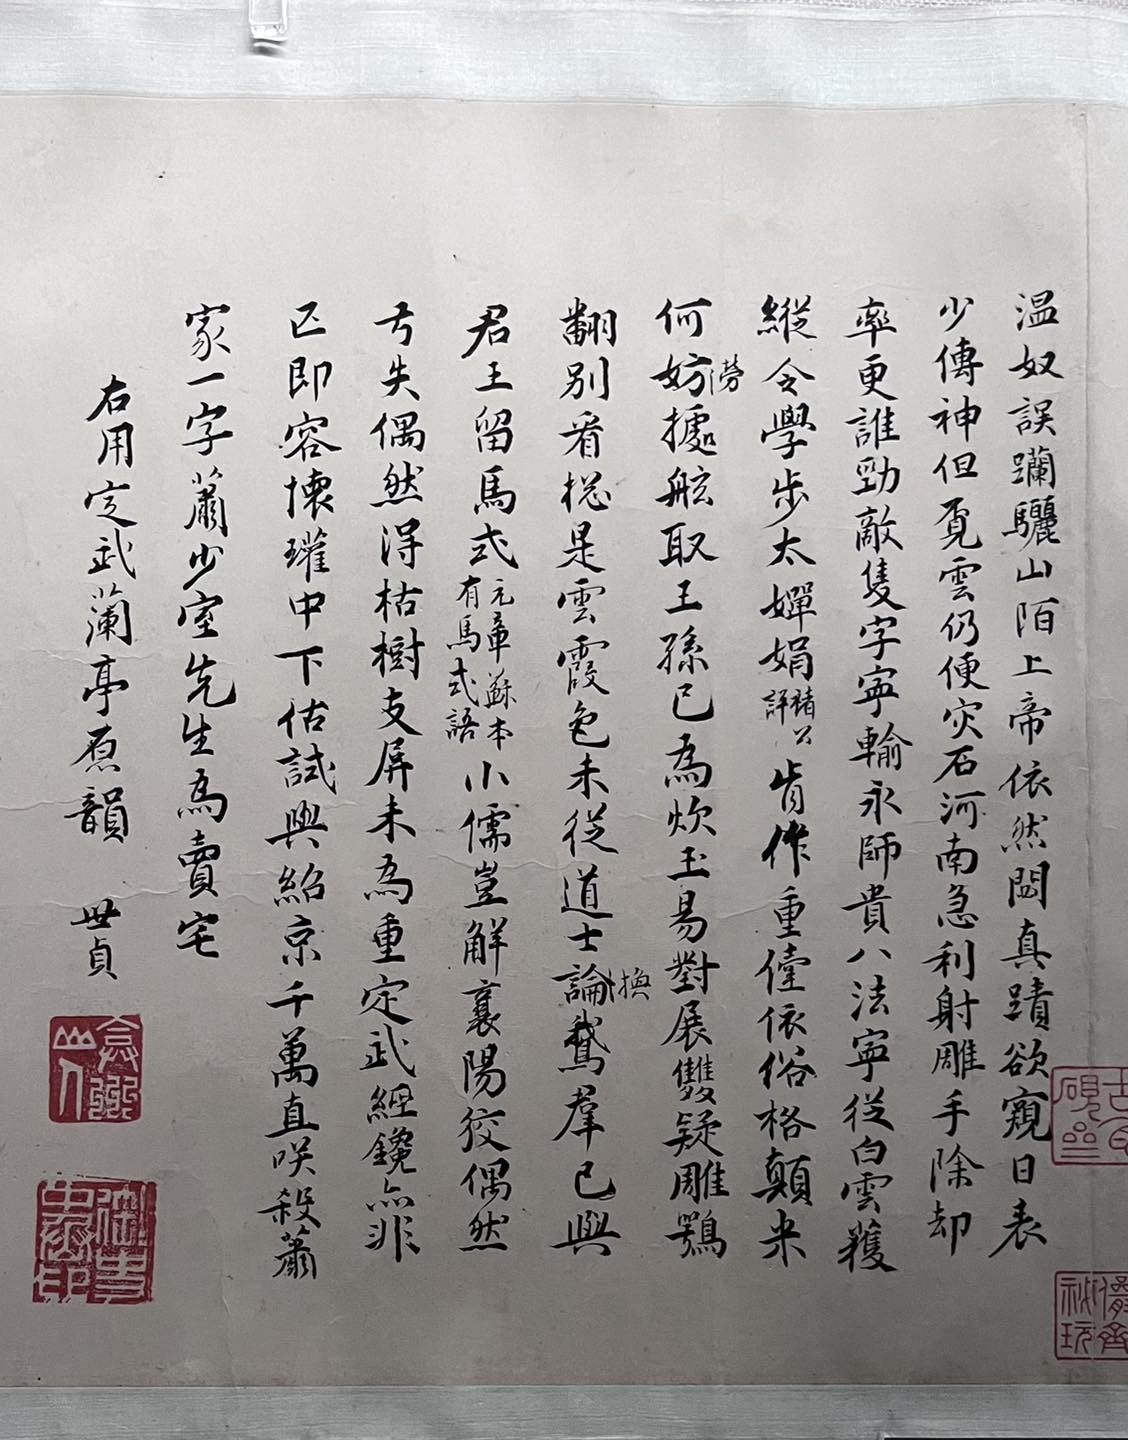 温奴誤躪驪山陌上帝依然閟真蹟欲窺日表
少傳神但覔雲仍便灾石河南急利射雕手除却
率更誰勁敵隻字寧輸永師貴八法寧從白雲獲
縱令學步太嬋娟褚公評肯作重儓依俗格顛米
何妨勞據舷取王孫已為炊玉易對展雙疑雕鶚
翻別看揔是雲霞色未從道士論換鵝羣已與
君王留馬式元章蘇本有馬式語小儒豈解襄陽狡偶然
亐失偶然淂枯樹支屏未為重定武經鑱亦非
匹即容懐瓘中下估試與紹京千萬直咲殺蕭
家一字蕭少室先生為賣宅
右用定武蘭亭原韻 世貞